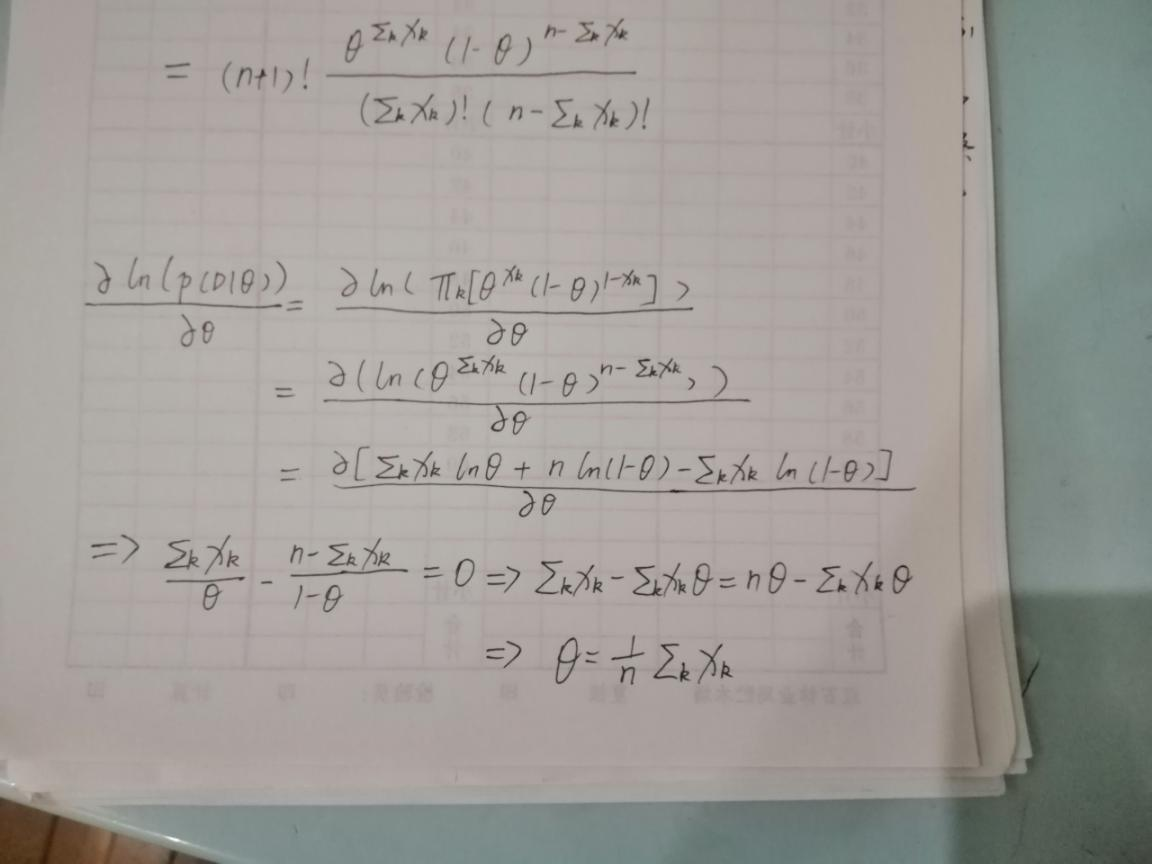 = (n+1)! \frac{θ^{Σ_k x_k} (1-θ)^{n-Σ_k x_k}}{(Σ_k x_k)! (n-Σ_k x_k)!}
\frac{∂ ln(p(D|θ))}{∂θ} = \frac{∂ ln( π_k[θ^{x_k} (1-θ)^{1-x_k}] )}{∂θ}
= \frac{∂(ln(θ^{Σ_k x_k} (1-θ)^{n-Σ_k x_k}))}{∂θ}
= \frac{∂[Σ_k x_k lnθ + n ln(1-θ) - Σ_k x_k ln(1-θ)]}{∂θ}
=> \frac{Σ_k x_k}{θ} - \frac{n-Σ_k x_k}{1-θ} = 0 => Σ_k x_k - Σ_k x_k θ = nθ - Σ_k x_k θ
=> θ = \frac{1}{n} Σ_k x_k